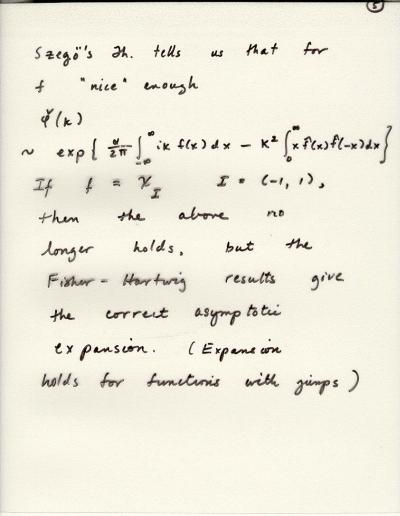 5
Szegö's Th. tells us that for
f "nice" enough
φ̌(k)
~ exp{ α/2π ∫_{-∞}^{∞} ik f(x) dx - k² ∫_0^∞ x f̂(x) f̂(-x) dx }
If f = χ_I I = (-1, 1),
then the above no
longer holds, but the
Fisher - Hartwig results give
the correct asymptotic
expansion. (Expansion
holds for functions with jumps)